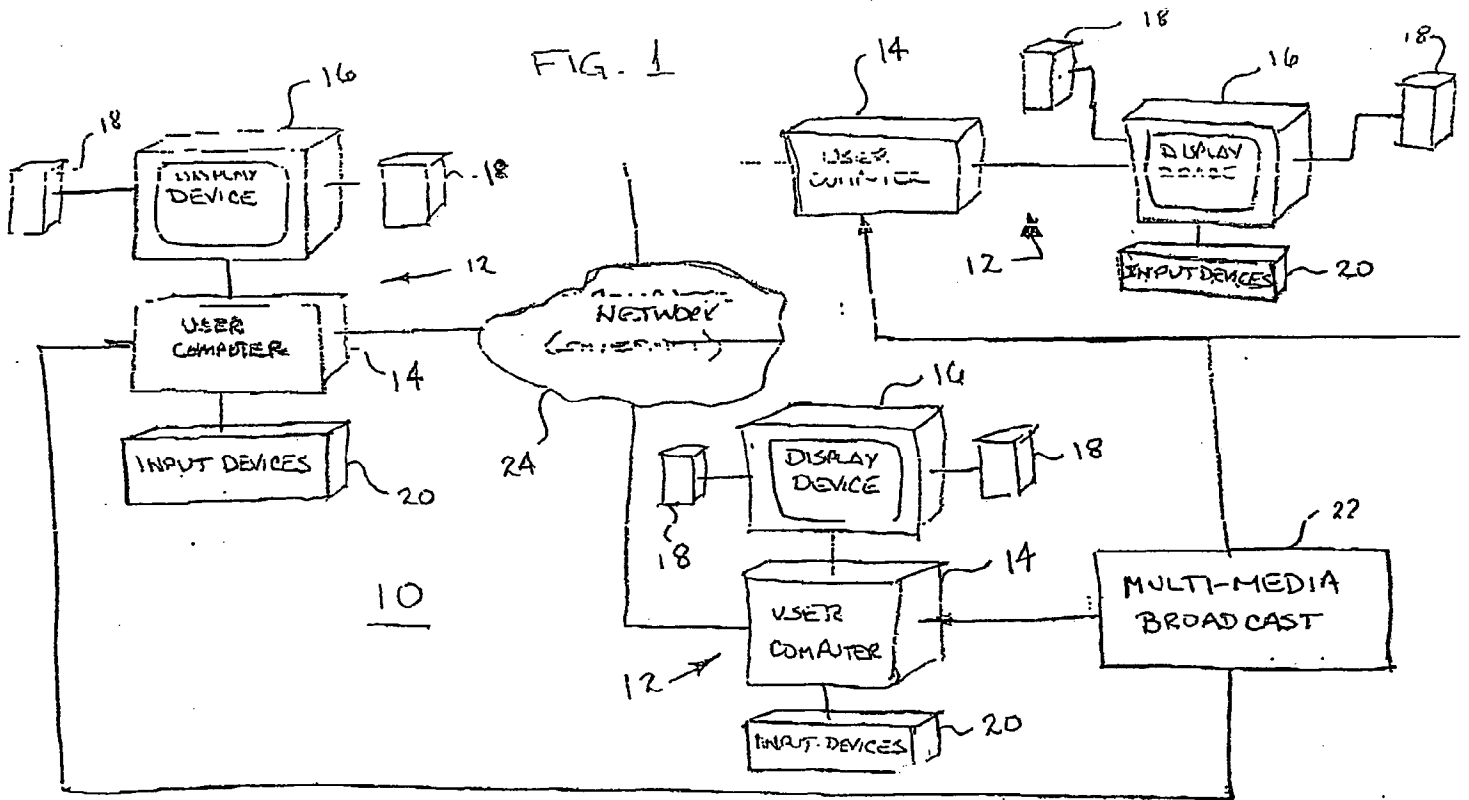 FIG. 1
16
18
18
DISPLAY
DEVICE
12
USER
COMPUTER
14
INPUT DEVICES
20
NETWORK
24
14
USER
COMPUTER
18
16
18
DISPLAY
12
INPUT DEVICES
20
16
18
18
DISPLAY
DEVICE
14
USER
COMPUTER
12
INPUT DEVICES
20
22
MULTI-MEDIA
BROADCAST
10